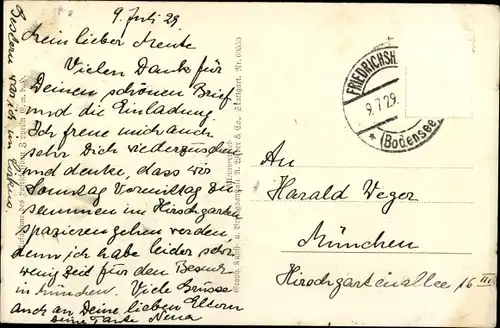 9. Juli 29
Mein lieber Heute
Vielen Dank für
Deinen schönen Brief
und die Einladung
Ich freue mich auch
sehr Dich wiederzusehen
und denke, dass wir
Sonntag Vormittag zu
sammen im Hirschgarten
spazieren gehen werden,
denn ich habe leider sehr
wenig Zeit für den Besuch
in München. Viele Grüsse
auch an Deine lieben Eltern
Deine Tante Nena
Gestern war ich im Cirkus.
FRIEDRICHSH
9.7.29.
* (Bodensee)
An
Harald Veger
München
Hirschgartenallee 16 III
& Co., Stuttgart. Nr. 60355